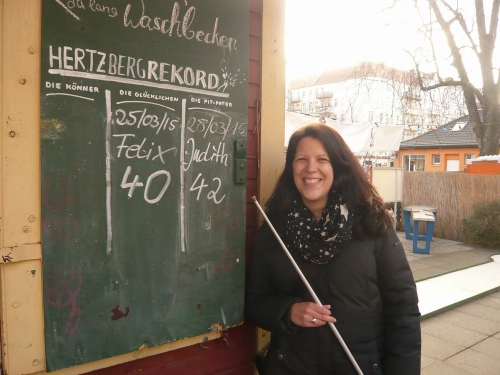 da lang Waschbecken
HERTZBERGREKORD
DIE KÖNNER DIE GLÜCKLICHEN DIE PIT-PATER
25/03/15 25/03/15
Felix Judith
40 42